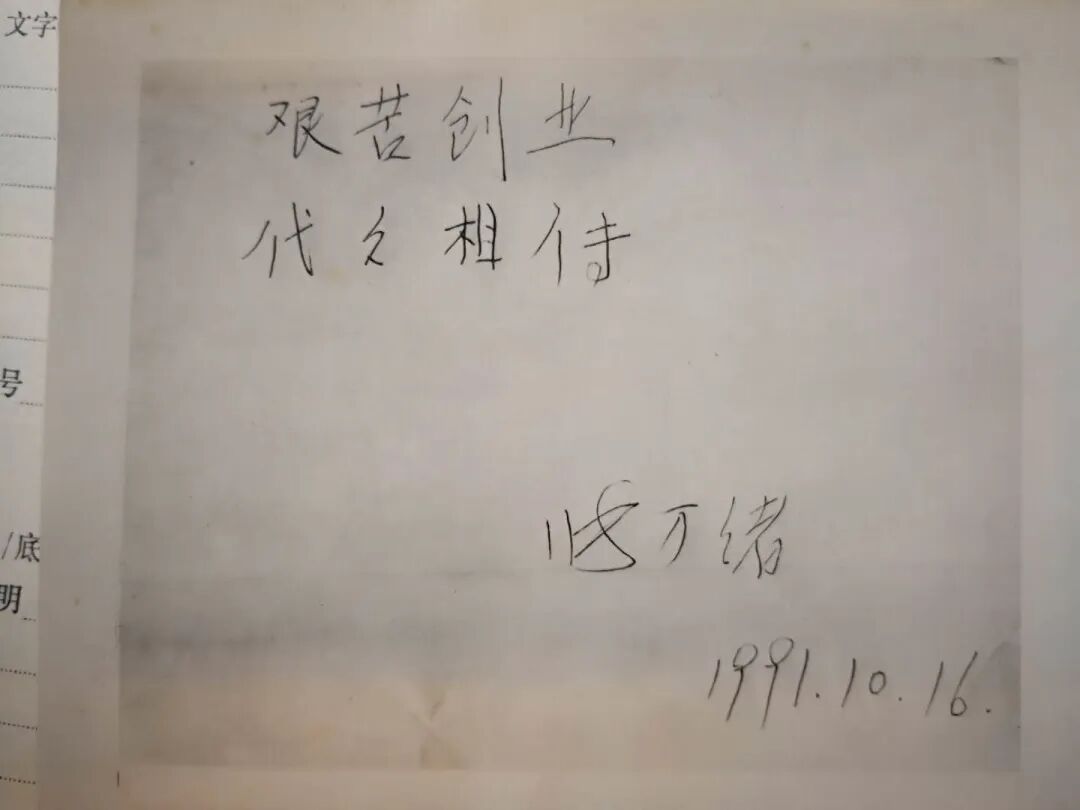 文字
艰苦创业
代々相传
号
万绪
/底
明
1991.10.16.